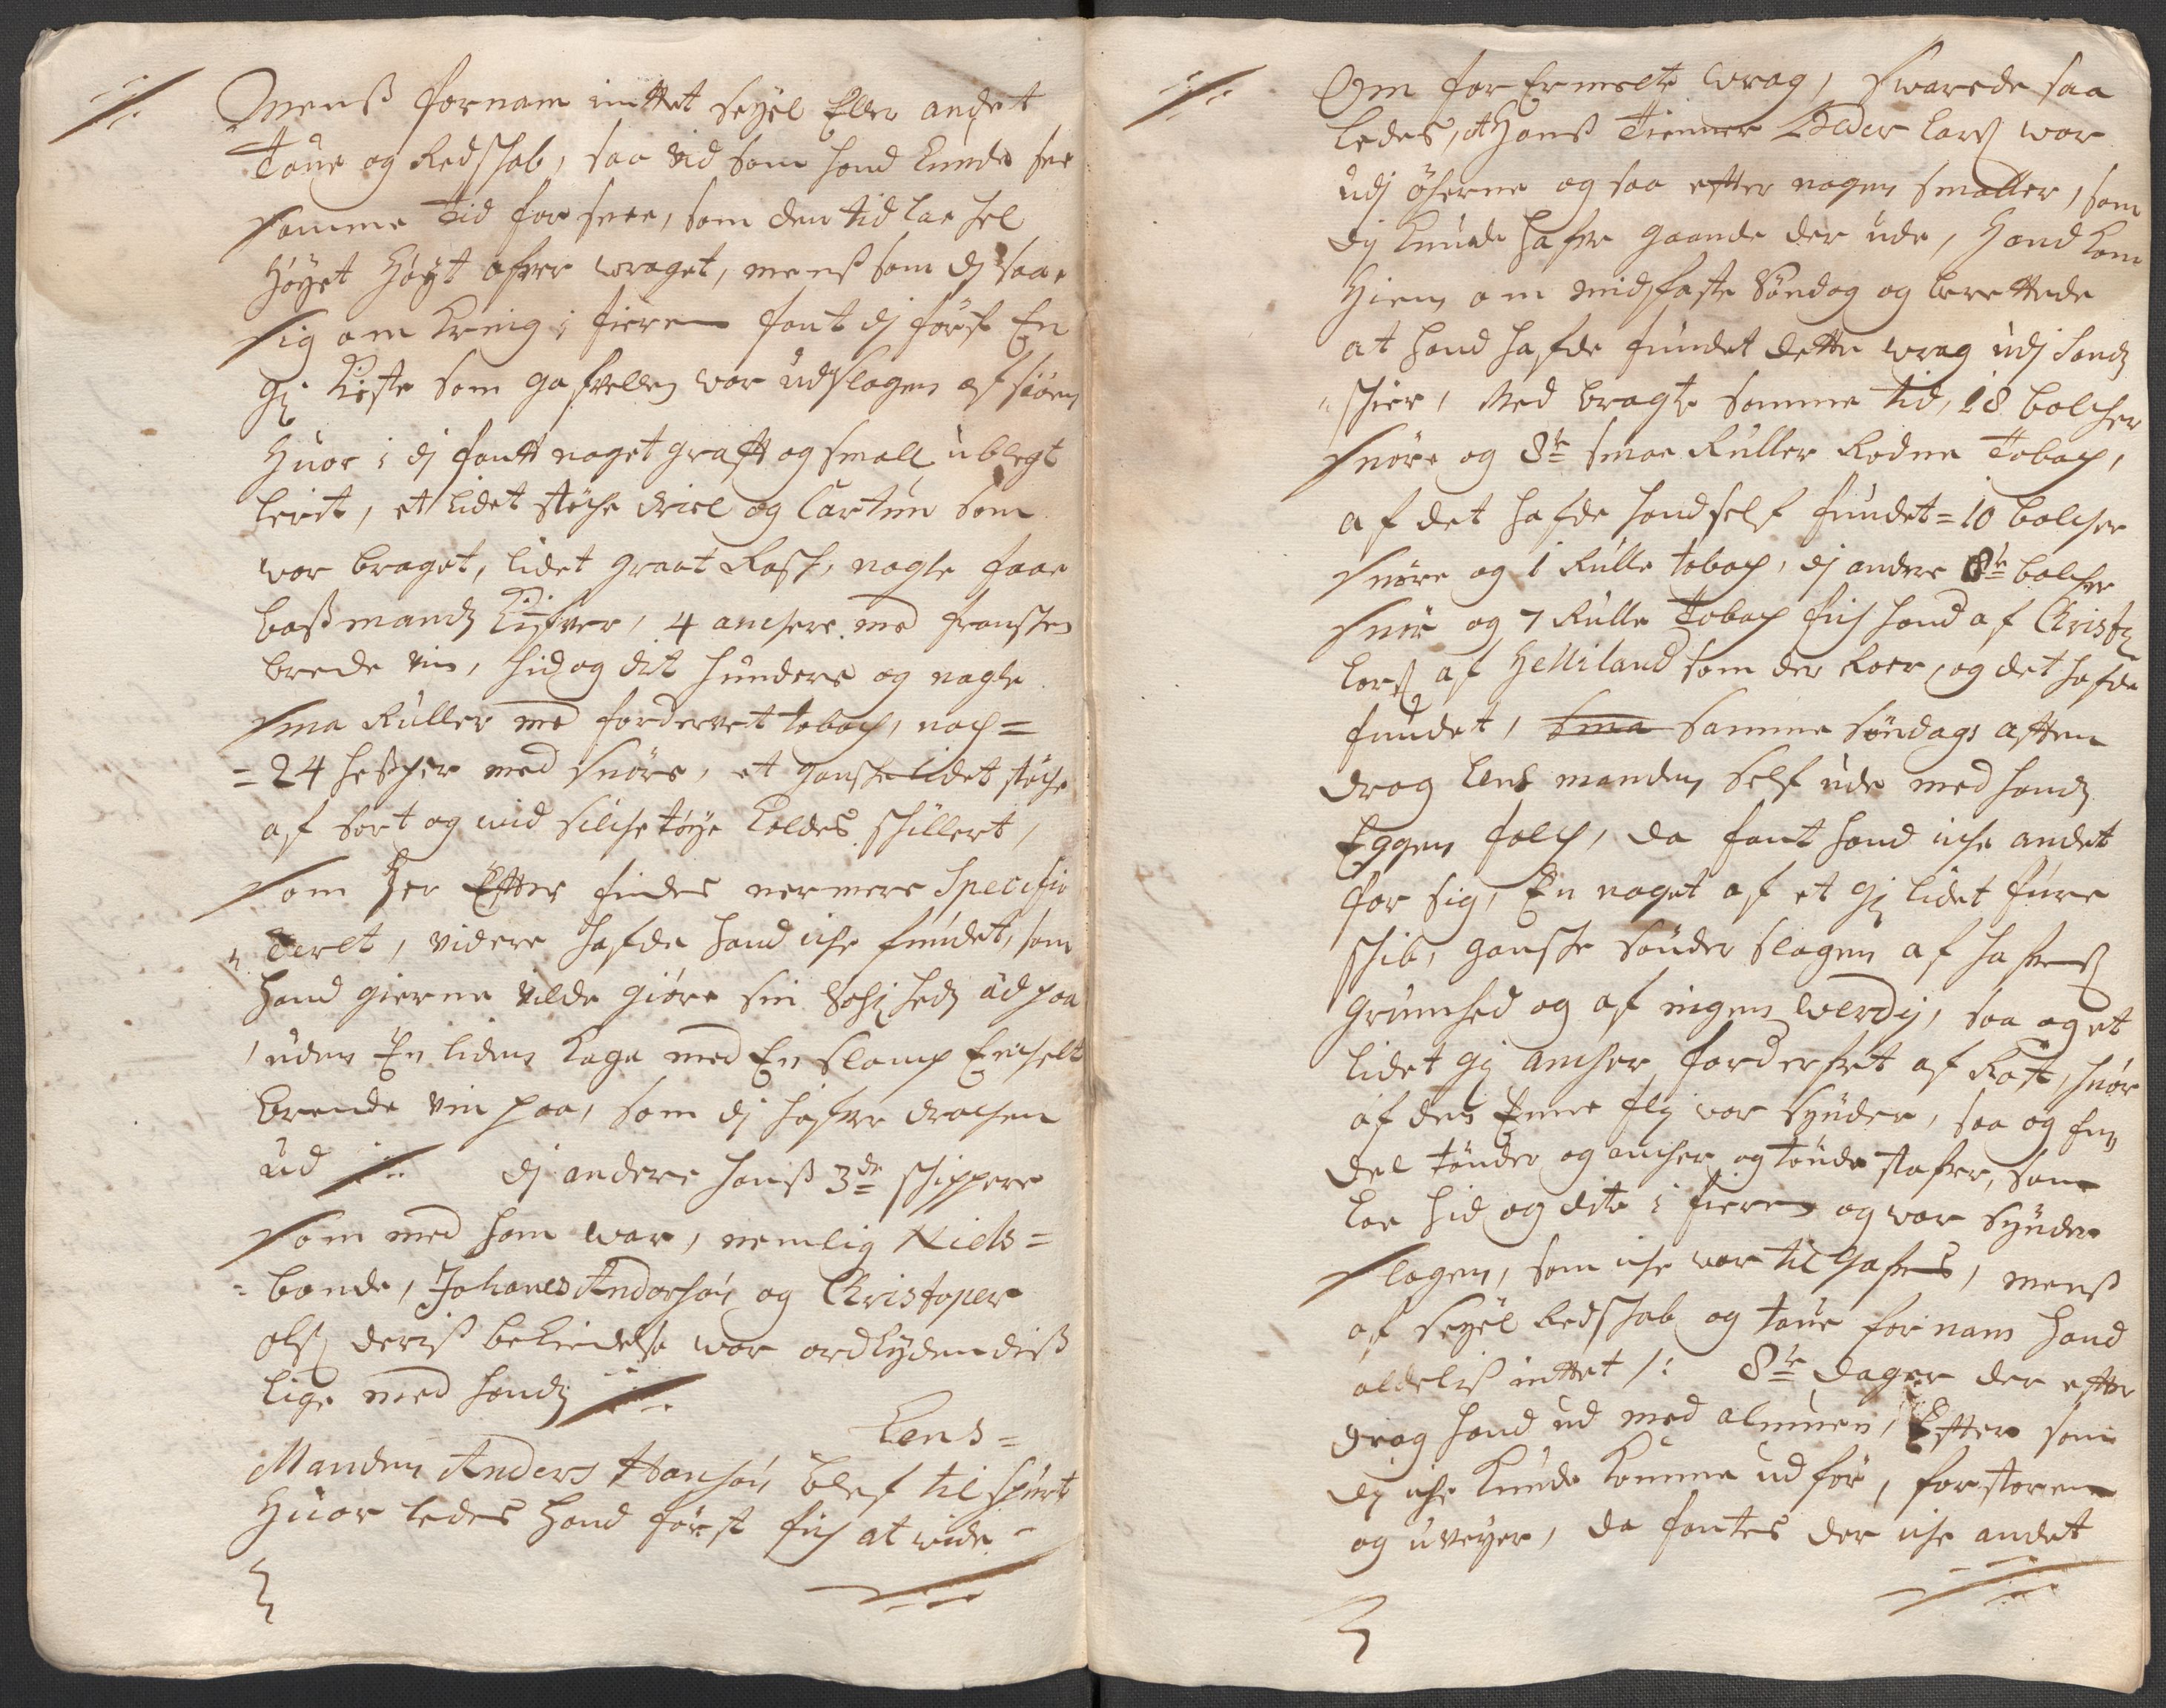 Menß fornam inttet seyel Eller andet
Toue og Redschab, saa vid som hand kunde see
samme Tid for snee, som den tid lae hel
Høyet høyt ofver wraget, menß som dj saae
sig om kring i fieren fant dj først En
gl: kiste som gafvellen var udslagen af siøen
huor i dj fantt noget graft og smalt ublegt
lerit, et lidet støche driel og Cartun som
vor braget, lidet graat Rask, nogle faae
boßmandz kifver, 4 anchere med fransken
brende vin, hid og dit hunders og nogle
sma Ruller med forderret toback, noch=
=24 hesper med snøre, et ganske lidet støche
af sort og uid silche tøye kaldes schillert,
som her Efter findes nermere Specifi¬
ceret, videre hafde hand iche fundet, som
hand gierne vilde giøre sin Eed ud paa
uden En liden kage med En slamp Enchelt
brende vin paa, som dj hafver drochen
ud dj andere hanß 3de schippere
som med ham war, nemlig Niels=
=bonde, Johanes Andersøn og Christoper
olß: deriß bekiendelse war ordlydendiß
lige med handz
Lens=
Manden Anders Hansøn blef tilspurt
Huor ledes hand først fich at vide
Om for Ermelte wrag, swarede saa
ledes, at Hanß Tienner Peder larß: war
udj øferne og saa efter nogen smaller, som
dy kunde hafve gaaende der ude, Hand kom
Hiem om midfaste Søndag og berettede
at hand hafde fundet dette wrag udj Sand
schier, Med bragte samme tid, 18 bolcher
snøre og 8te smae Ruller Rodne Toback,
af det hafde hand self fundet = 10 bolcher
snøre og 1 Rulle toback, dj andre 8te bolcher
snør og 7 Rulle Toback fich hand af Christ:
larß: af Helliland som der Roer, og det hafde
fundet, sma samme søndags aften
drog lens manden self ude med handz
Eggen folch, da fant hand iche andet
for sig, En noget af et gl: lidet fure
schib, ganske sønder slagen af hafvens
grumhed og af ingen werdj, saa og et
lidet gl: ancher forderfvet af Rost, huor
af den Eene flj var synder, saa og En
del tønder og ancher og tønde stafver, som
lae hid og dite i fieren og var synder
slagen, som iche war til gafns, menß
af seyel Redschab og toue fornam hand
aldeliß inttet /: 8te dager der efter
drog hand ud med almuen, Efter som
dj iche kunde komme ud før, for storm
og uveyer, da fantes der iche andet